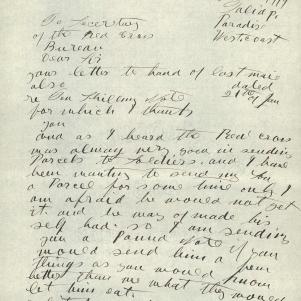 Salid P.
To Secertary
Paradise
of the Red Cross
West coast
Bureau
Dear Sir
your letter to hand of last mail
also dated
re Ten Shilling Note 21st of Jan
for which I thank
you
and as I heard the Red Cross
was always very good in sending
Parcels to Soldiers. and I have
been wanting to send my Son
a Parcel for some time only I
am afraid he would not get
it. and be way of made his
self had. so I am sending
you a Pound Note if you
would send him a few
things as you would know
better than me what they would
let him eat.